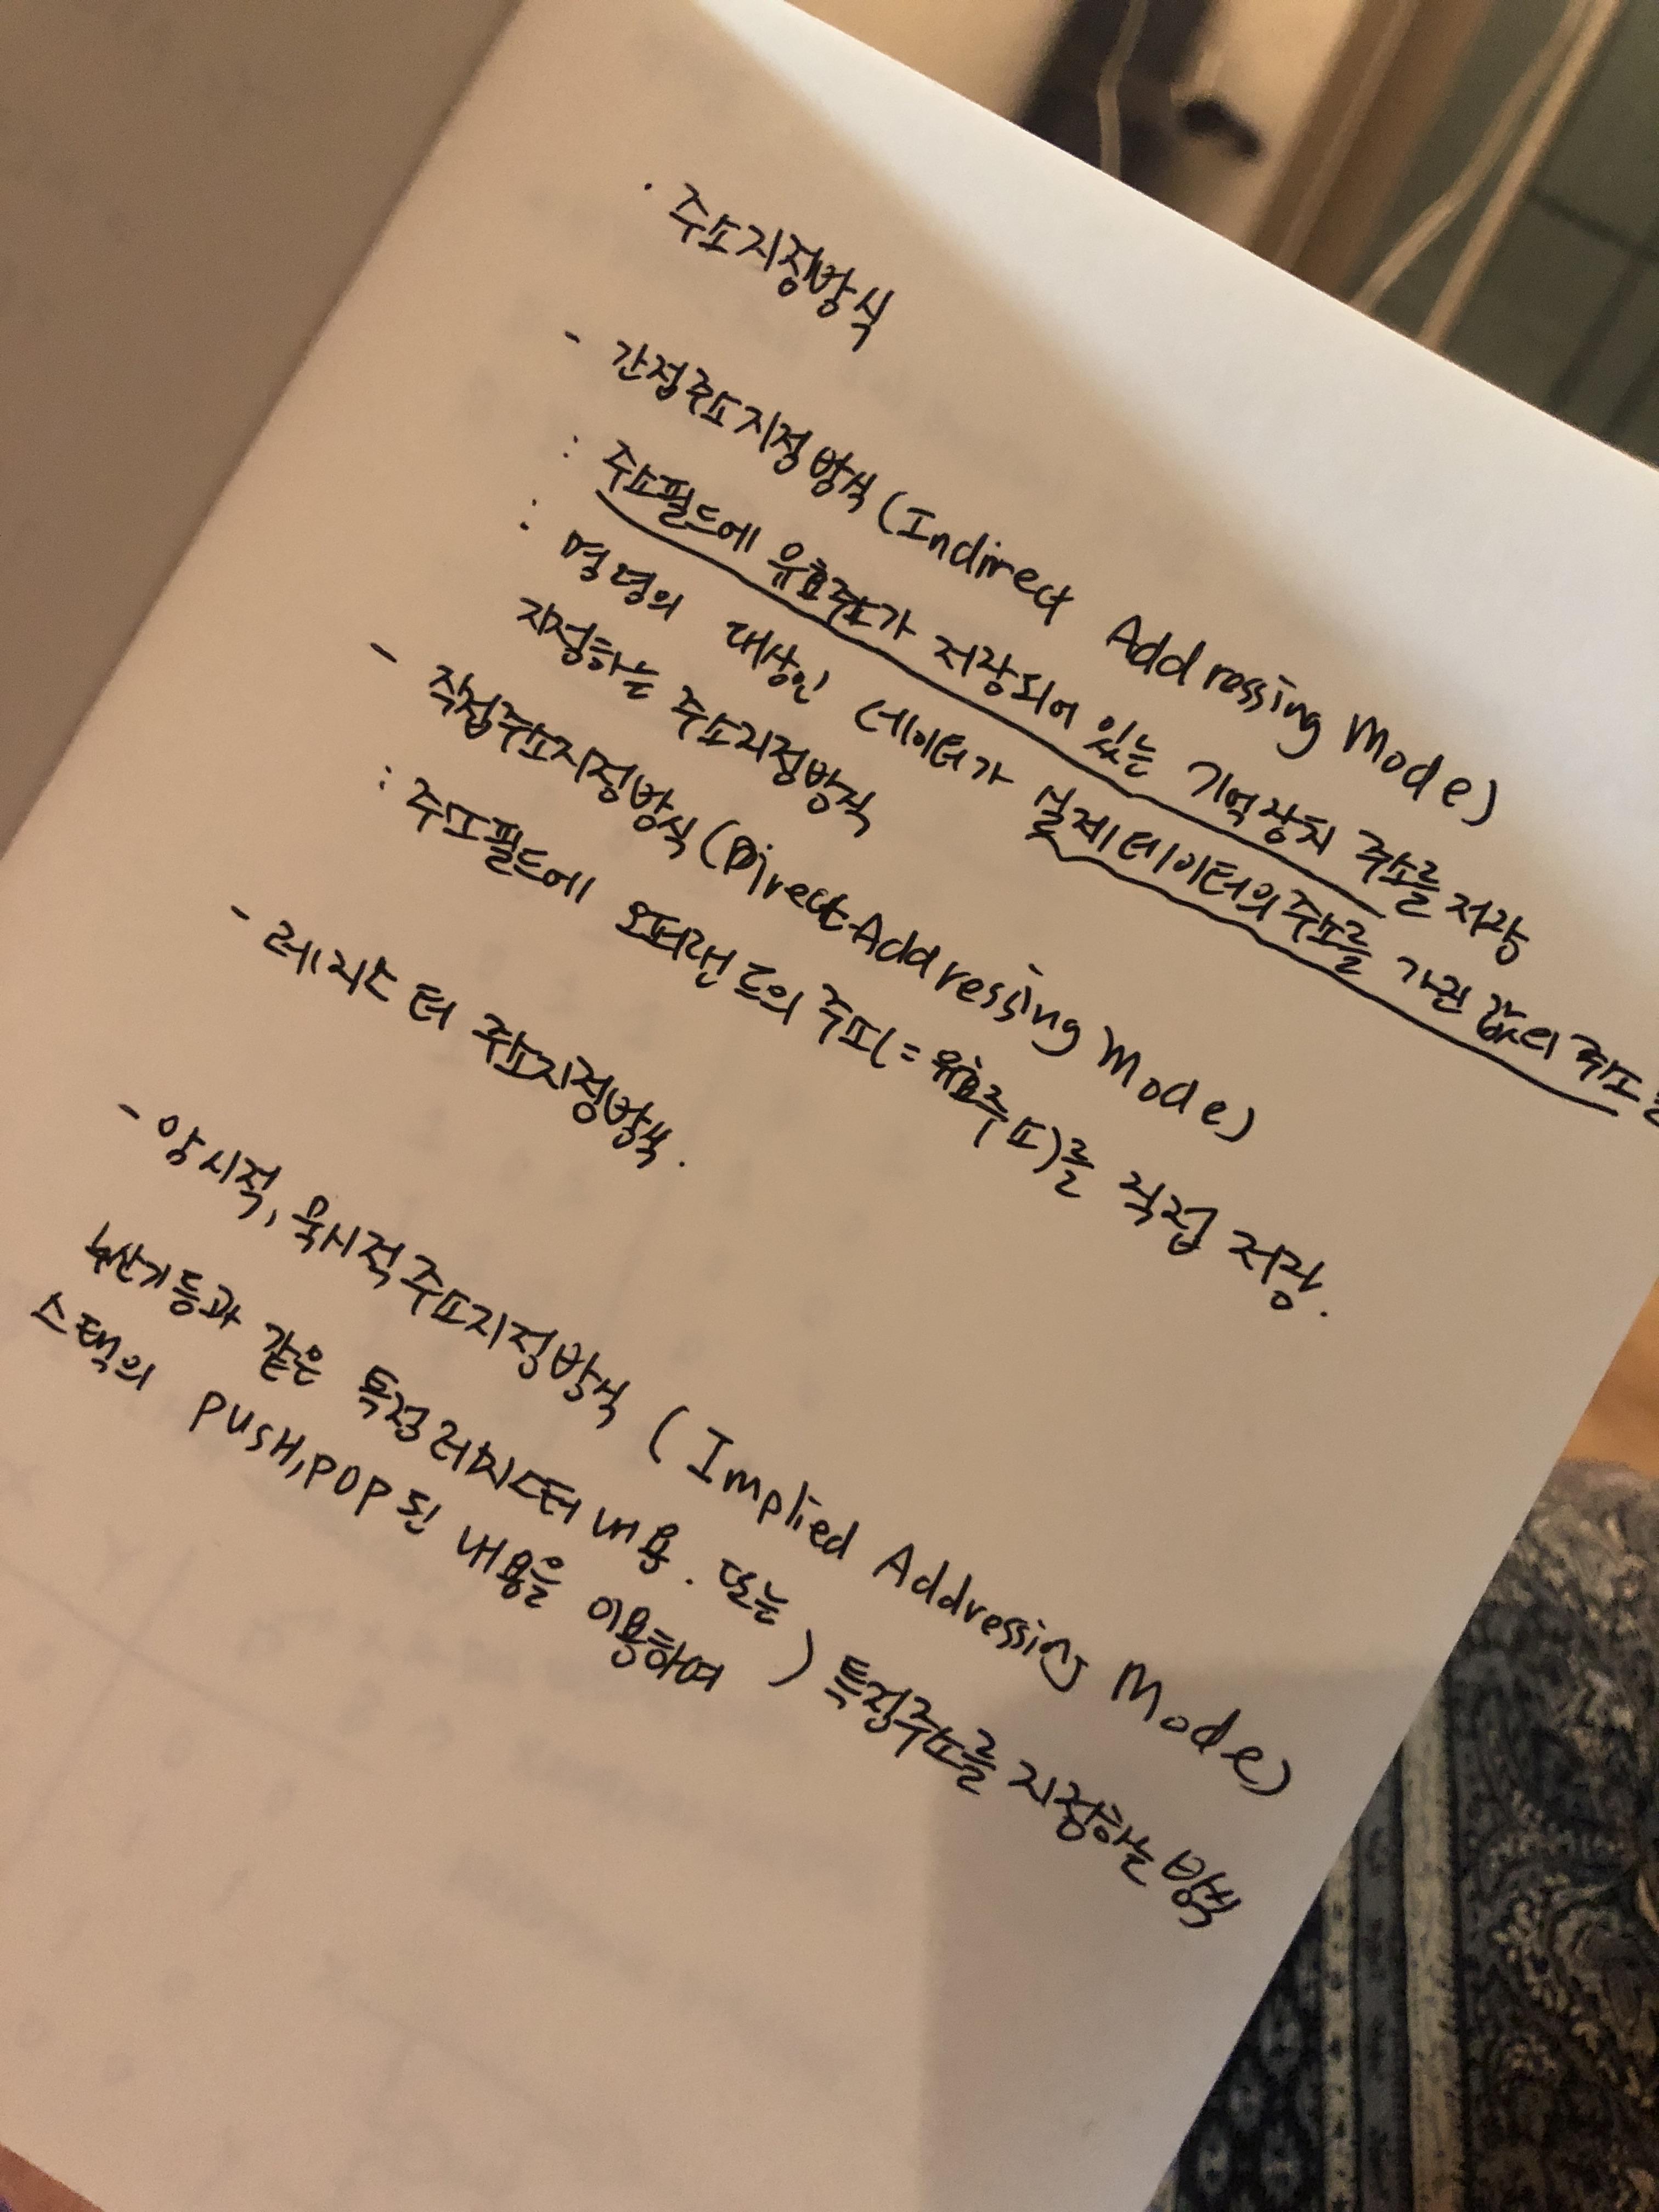 · 주소지정방식
- 간접주소지정방식 (Indirect Addressing Mode)
: 주소필드에 유효주소가 저장되어 있는 기억장치 주소를 저장
: 명령의 대상인 데이터가 실제데이터의 주소를 가진 값의 주소를
지정하는 주소지정방식
- 직접주소지정방식 (Direct Addressing Mode)
: 주소필드에 오퍼랜드의 주소(=유효주소)를 직접 저장.
- 레지스터 주소지정방식.
- 암시적, 묵시적 주소지정방식 (Implied Addressing Mode)
누산기 등과 같은 특정 레지스터 내용. 또는
스택의 PUSH, POP 된 내용을 이용하여 ) 특정주소를 지정하는 방식